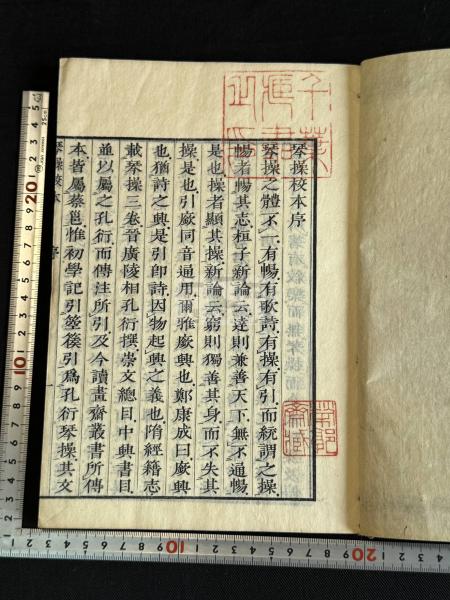 千葉
藏書
之印
琴操校本序
琴操之體不一有暢有歌詩有操有引而統謂之操
暢者暢其志桓子新論云達則兼善天下無不通暢
是也操者顯其操新論云窮則獨善其身而不失其
操是也引廞同音通用爾雅廞興也鄭康成曰廞興
也猶詩之興是引卽詩因物起興之義也隋經籍志
載琴操三卷晉廣陵相孔衍撰崇文總目中興書目
並以屬之孔衍而傳注所引及今讀畫齋叢書所傳
本皆屬蔡邕惟初學記引箜篌引爲孔衍琴操其文
琴操校本 序